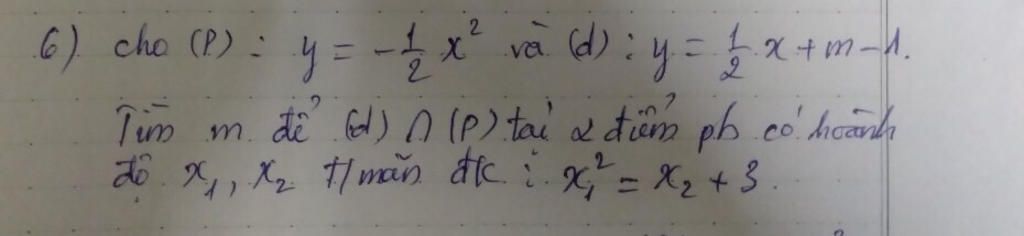 6) cho (P) : y = -1/2 x² và (d) : y = 1/2 x + m - 1.
Tìm m để (d) ∩ (P) tại 2 điểm pb có hoành
độ x₁, x₂ t/mãn đk : x₁² = x₂ + 3.